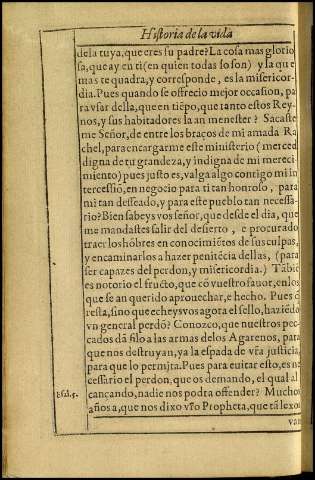 Historia de la vida
de la tuya, que eres su padre? La cosa mas glorio
sa, que ay en ti (en quien todas lo son) y la que
mas te quadra, y corresponde, es la misericor-
dia. Pues quando se offrecio mejor occasion, pa
ra vsar della, que en tiẽpo, que tanto estos Rey-
nos, y sus habitadores la an menester? Sacaste
me Señor, de entre los braços de mi amada Ra
chel, para encargarme este ministerio (merced
digna de tu grandeza, y indigna de mi mereci
miento) pues justo es, valga algo contigo mi in
tercessiõ, en negocio para ti tan honroso, para
mi tan desseado, y para este pueblo tan necessa-
rio? Bien sabeys vos señor, que desde el dia, que
me mandastes salir del desierto, e procurado
traer los hõbres en conocimiẽtos de sus culpas,
y encaminarlos a hazer penitẽcia dellas, (para
ser capazes del perdon, y misericordia.) Tãbiẽ
es notorio el fructo, que cõ vuestro fauor, en los
que se an querido aprouechar, e hecho. Pues q̃
resta, sino que echeys vos agora el sello, haziẽdo
vn general perdõ? Conozco, que nuestros pec-
cados dã filo a las armas de los Agarenos, para
que nos destruyan, ya la espada de vr̃a justicia,
para que lo permita. Pues para euitar esto, es ne
cessario el perdon, que os demando, el qual al
cançando, nadie nos podra offender? Muchos
Esai. 5.
años a, que nos dixo vr̃o Propheta, que tã lexos
van